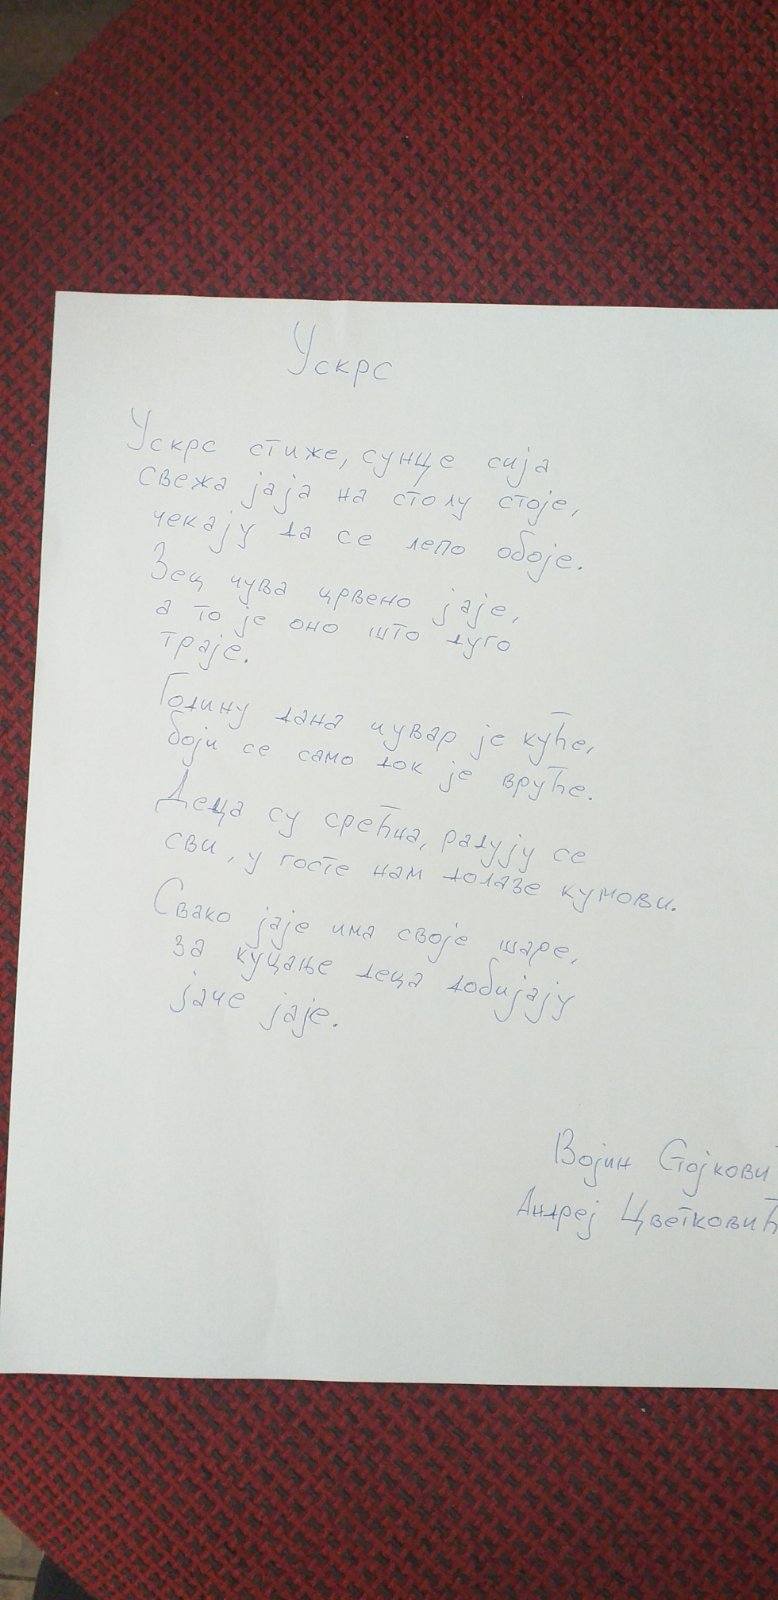 Ускрс
Ускрс стиже, сунце сија
свежа јаја на столу стоје,
чекају да се лепо обоје.
Зец чува црвено јаје,
а то је оно што дуго
траје.
Годину дана чувар је куће,
боји се само док је вруће.
Деца су срећна, радују се
сви, у госте нам долазе кумови.
Свако јаје има своје шаре,
за куцање деца добијају
јаче јаје.
Војин Стојкови
Андреј Цветковић